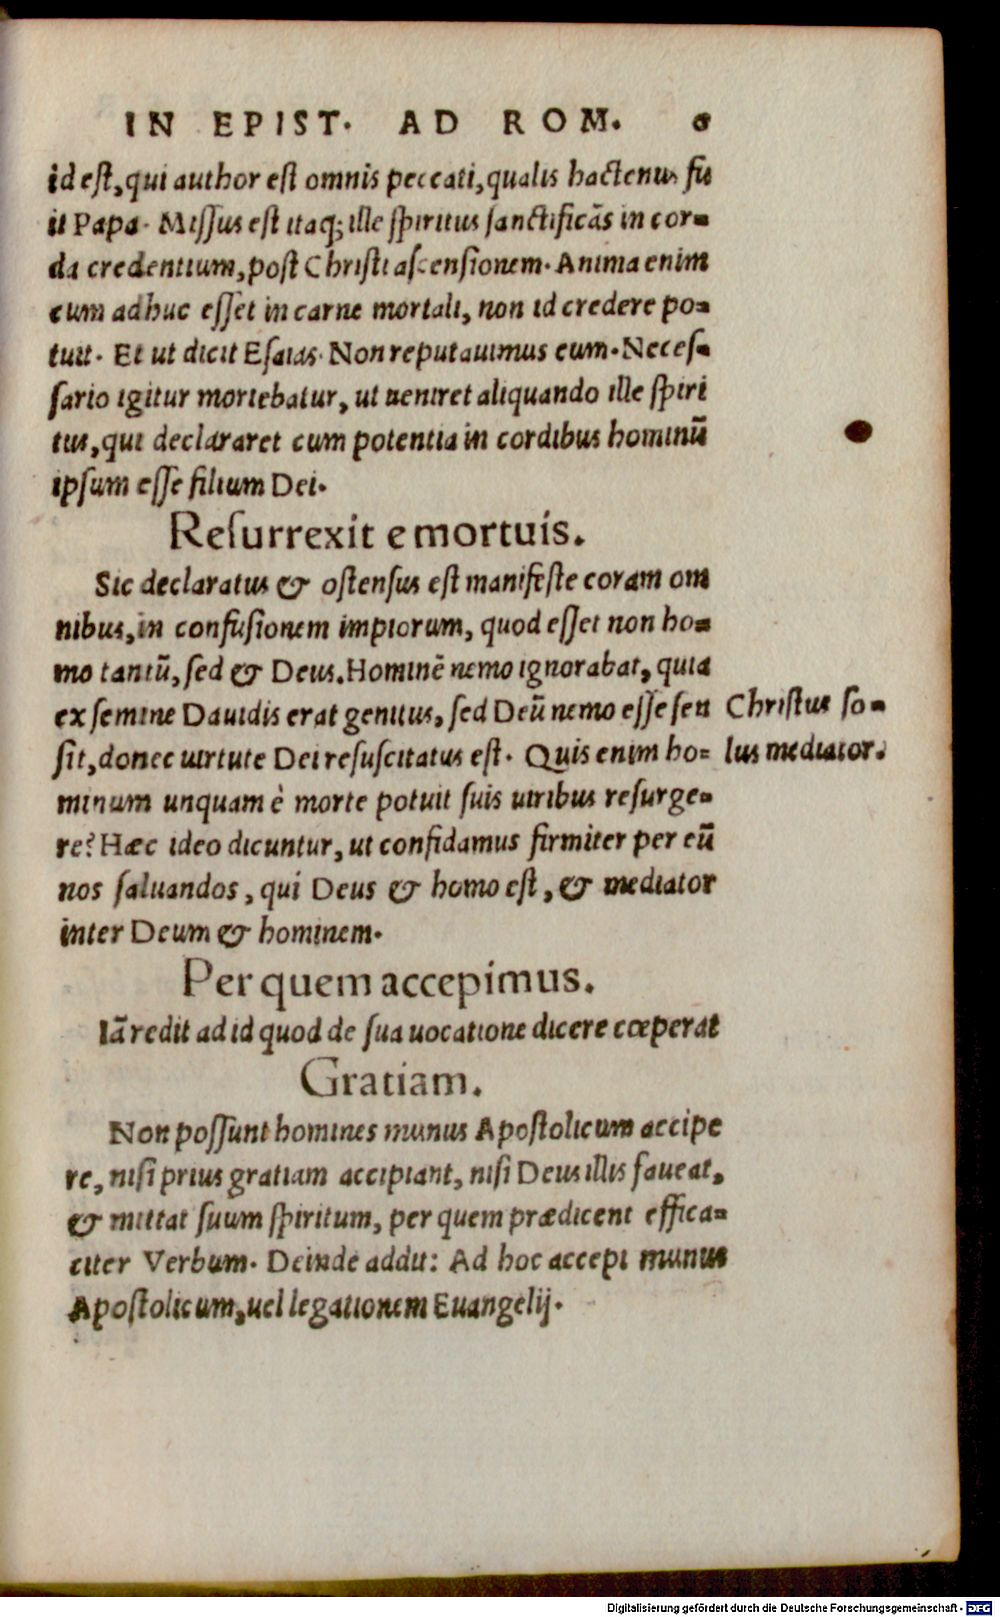 IN EPIST. AD ROM. 6
id est, qui author est omnis peccati, qualis hactenus fu
it Papa. Missus est itaq; ille spiritus sanctificãs in cor-
da credentium, post Christi ascensionem. Anima enim
cum adhuc esset in carne mortali, non id credere po-
tuit. Et ut dicit Esaias. Non reputauimus eum. Neces-
sario igitur moriebatur, ut ueniret aliquando ille spiri
tus, qui declararet cum potentia in cordibus hominũ
ipsum esse filium Dei.
Resurrexit e mortuis.
Sic declaratus & ostensus est manifeste coram om
nibus, in confusionem impiorum, quod esset non ho-
mo tantũ, sed & Deus. Hominẽ nemo ignorabat, quia
ex semine Dauidis erat genitus, sed Deũ nemo esse sen
sit, donec uirtute Dei resuscitatus est. Quis enim ho-
minum unquam è morte potuit suis uiribus resurge-
re? Hæc ideo dicuntur, ut confidamus firmiter per eũ
nos saluandos, qui Deus & homo est, & mediator
inter Deum & hominem.
Christus so-
lus mediator.
Per quem accepimus.
Iã redit ad id quod de sua uocatione dicere cœperat
Gratiam.
Non possunt homines munus Apostolicum accipe
re, nisi prius gratiam accipiant, nisi Deus illis faueat,
& mittat suum spiritum, per quem prædicent effica-
citer Verbum. Deinde addit: Ad hoc accepi munus
Apostolicum, uel legationem Euangelij.
Digitalisierung gefördert durch die Deutsche Forschungsgemeinschaft - DFG